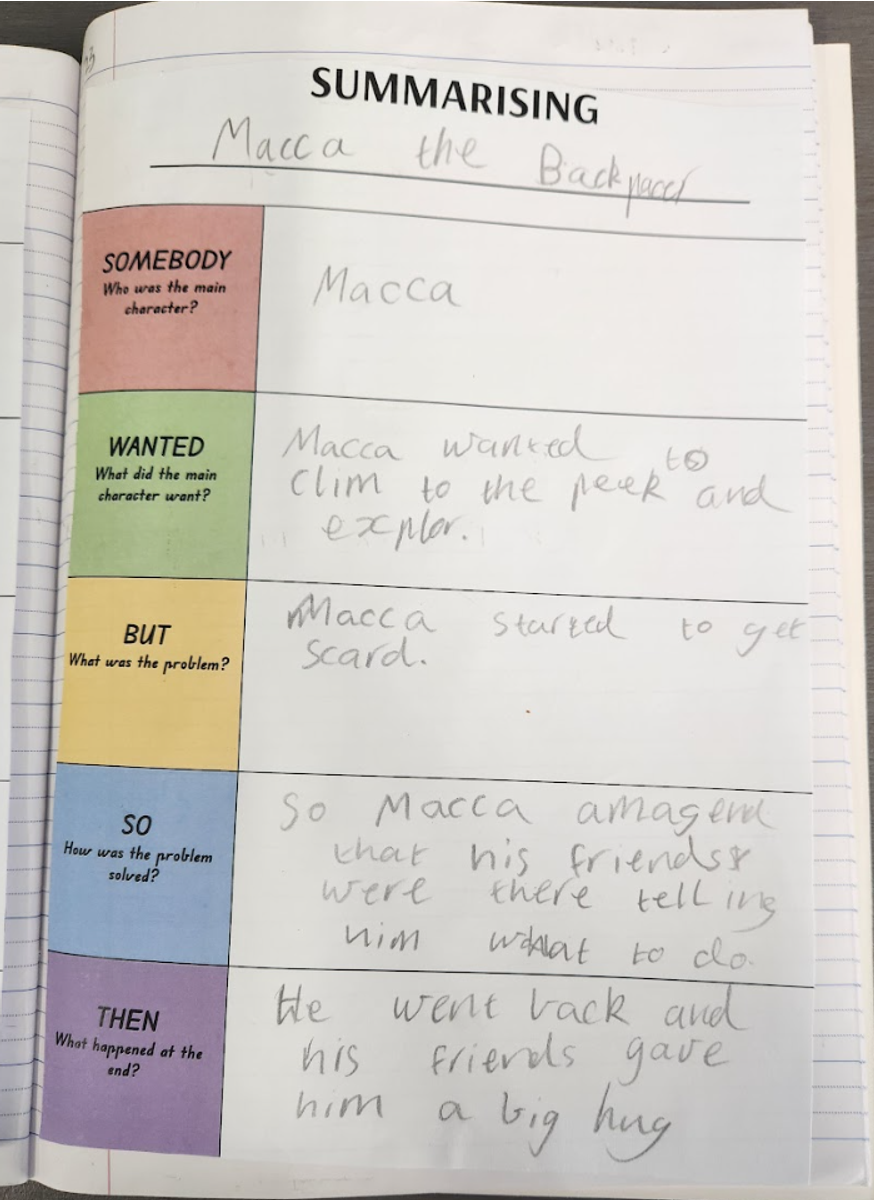 33
SUMMARISING
Macca the Backpacer
SOMEBODY
Who was the main
character?
Macca
WANTED
What did the main
character want?
Macca wanted to
Clim to the peek and
explor.
BUT
What was the problem?
Macca started to get
scard.
SO
How was the problem
solved?
So Macca amagend
that his friends
were there telling
him what to do.
THEN
What happened at the
end?
He went back and
his friends gave
him a big hug